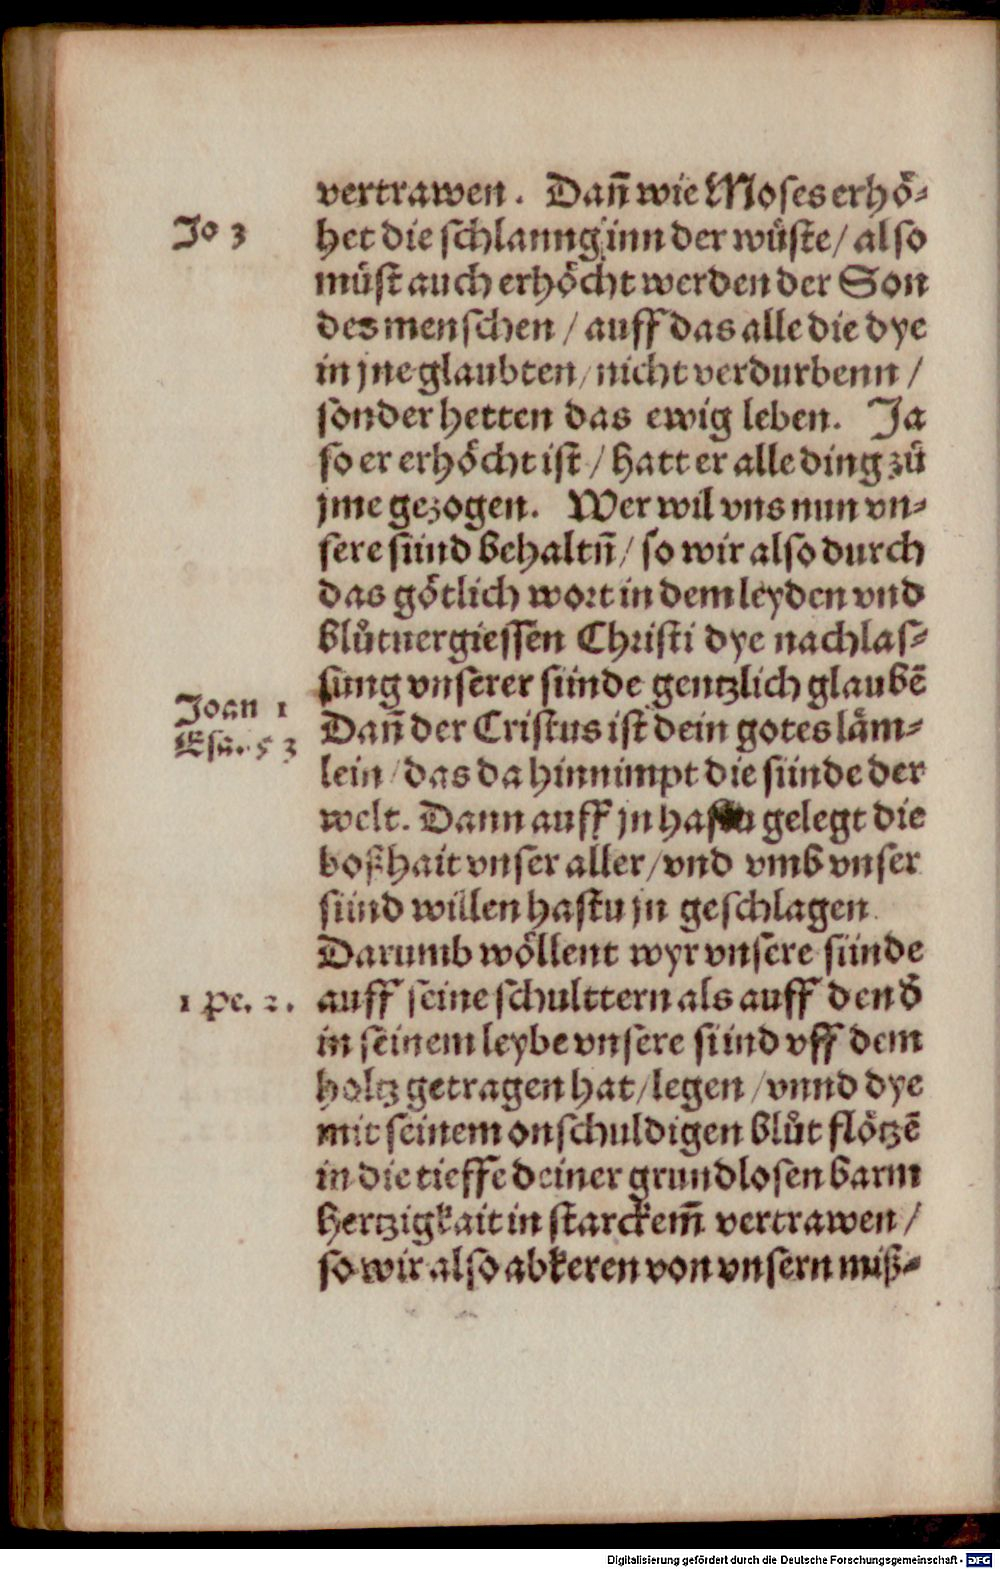 vertrawen. Dañ wie Moses erhö-
Jo 3
het die schlanng inn der wüste/ also
můst auch erhöcht werden der Son
des menschen / auff das alle die dye
in jne glaubten/ nicht verdurbenn /
sonder hetten das ewig leben. Ja
so er erhöcht ist / hatt er alle ding zů
jme gezogen. Wer wil vns nun vn-
sere sünd behaltñ/ so wir also durch
das götlich wort in dem leyden vnd
blůtuergiessen Christi dye nachlas-
sung vnserer sünde gentzlich glaubē
Joan 1
Dañ der Cristus ist dein gotes läm-
Esa. 53
lein / das da hinnimpt die sünde der
welt. Dann auff jn hastu gelegt die
boßhait vnser aller/ vnd vmb vnser
sünd willen hastu jn geschlagen
Darumb wöllent wyr vnsere sünde
1 pe. 2.
auff seine schulttern als auff den d̄
in seinem leybe vnsere sünd vff dem
holtz getragen hat/ legen / vnnd dye
mit seinem onschuldigen blůt flötzē
in die tieffe deiner grundlosen barm
hertzigkait in starckem̄ vertrawen /
so wir also abkeren von vnsern miß-
Digitalisierung gefördert durch die Deutsche Forschungsgemeinschaft - DFG